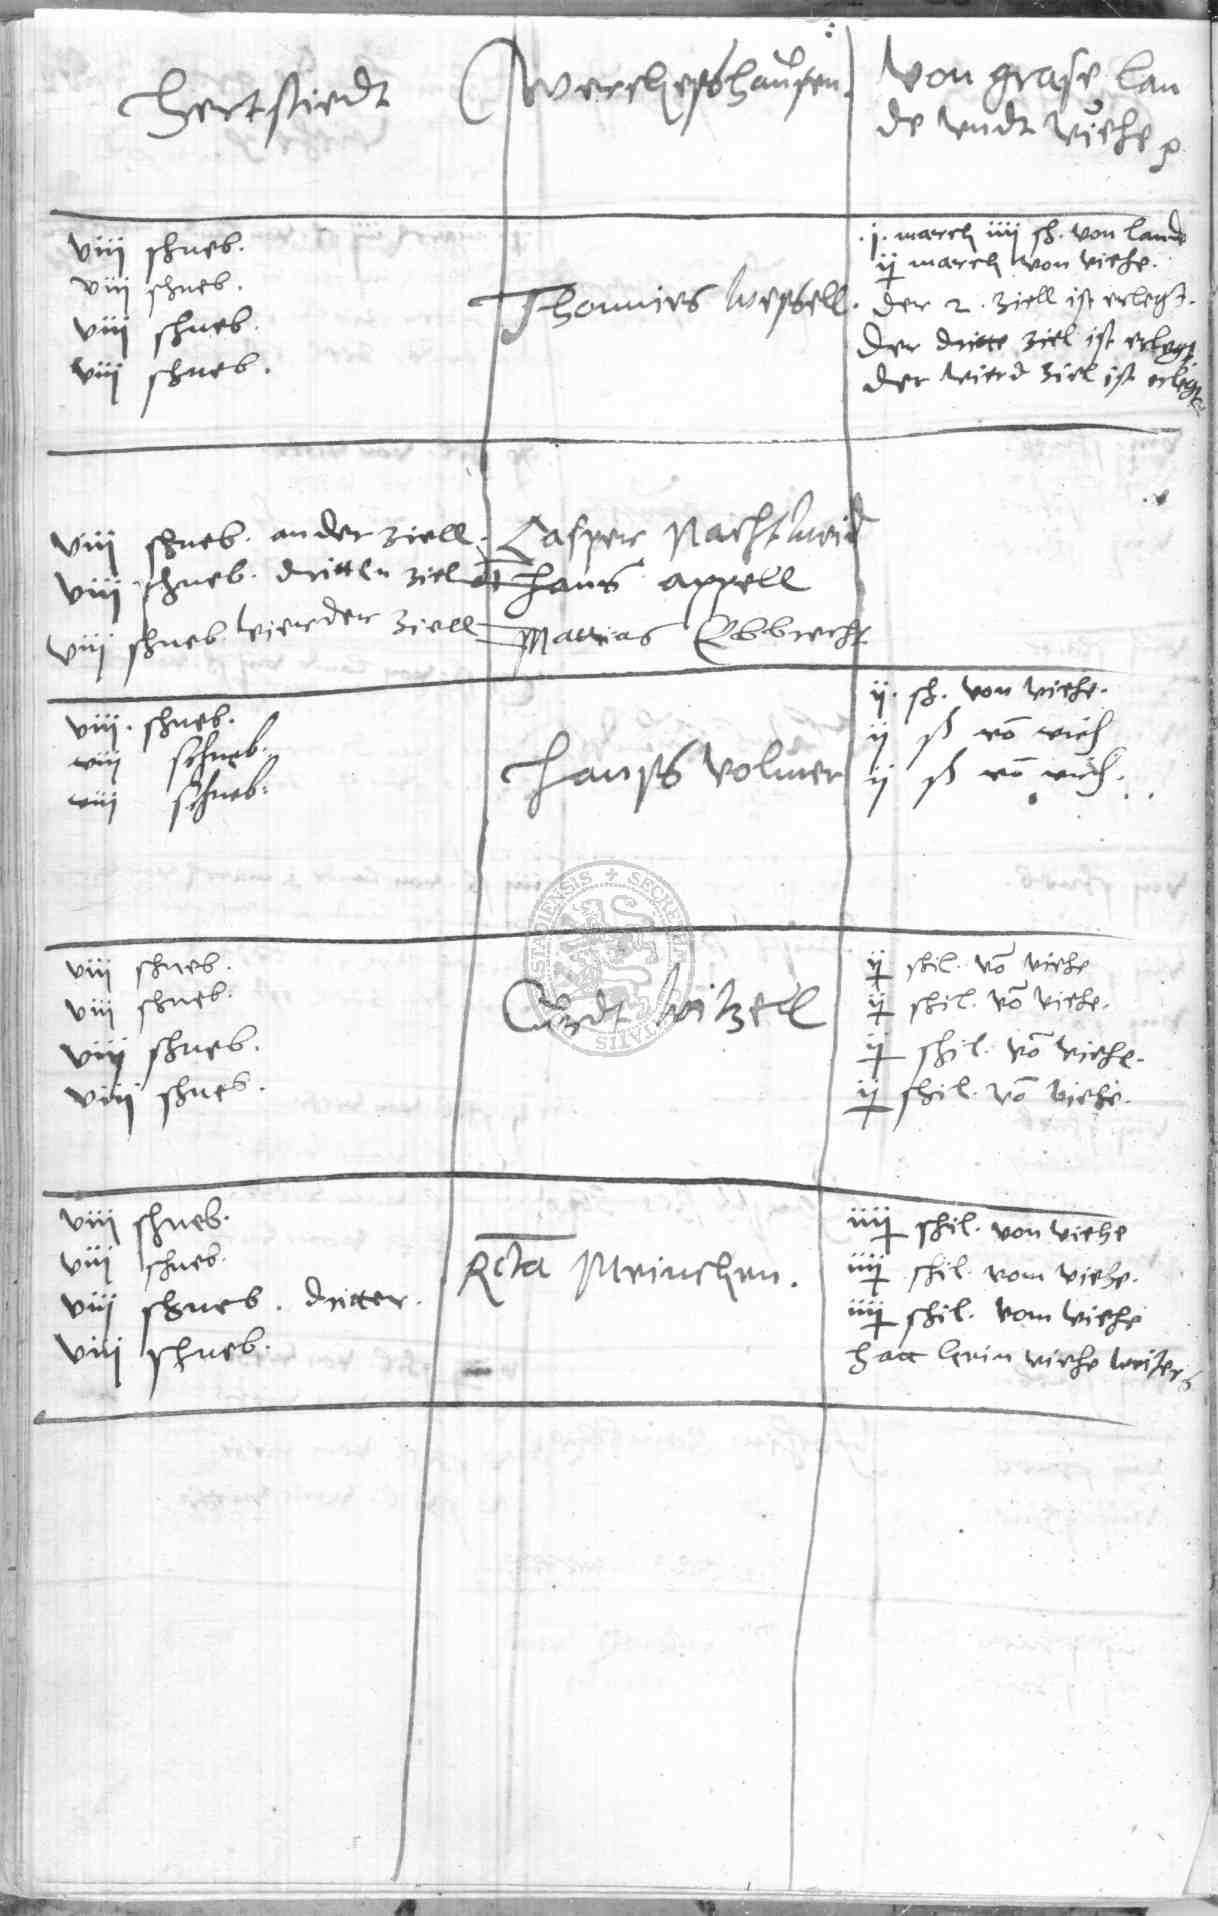 Hertstedt
Werchesshausen.
Von grase lan
de vndt viehe
viii schneb.
viii schneb.
viii schneb.
viii schneb.
Thonnies Wessell.
j. march iiii sh. von lande
ij march von viehe.
der 2. ziell ist erlegt.
der dritte ziel ist erlegt
der vierd ziel ist erlegt
viii schneb. ander ziell.
viii schneb. dritten ziel
viii schneb vierder ziell
Casper Nachtweid
Hans Appell
Mattias Ebbrecht
viii. schneb.
viii schneb.
viii schneb.
Hanss Volmer
ij. sh. von viehe.
ij ß vō vieh
ij ß vō vieh.
viii schneb.
viii schneb.
viii schneb.
viii schneb.
Curdt Witzell
ij shil. vō viehe
ij shil. vō viehe.
ij shil. vō viehe.
ij shil. vō viehe.
viii schneb.
viii schneb.
viii schneb. dritter.
viii schneb.
Meinchen.
iiij shil. von viehe
iiij shil. vom viehe.
iiij shil. vom viehe
hatt kein viehe weiters
STADIENSIS + SECRETUM